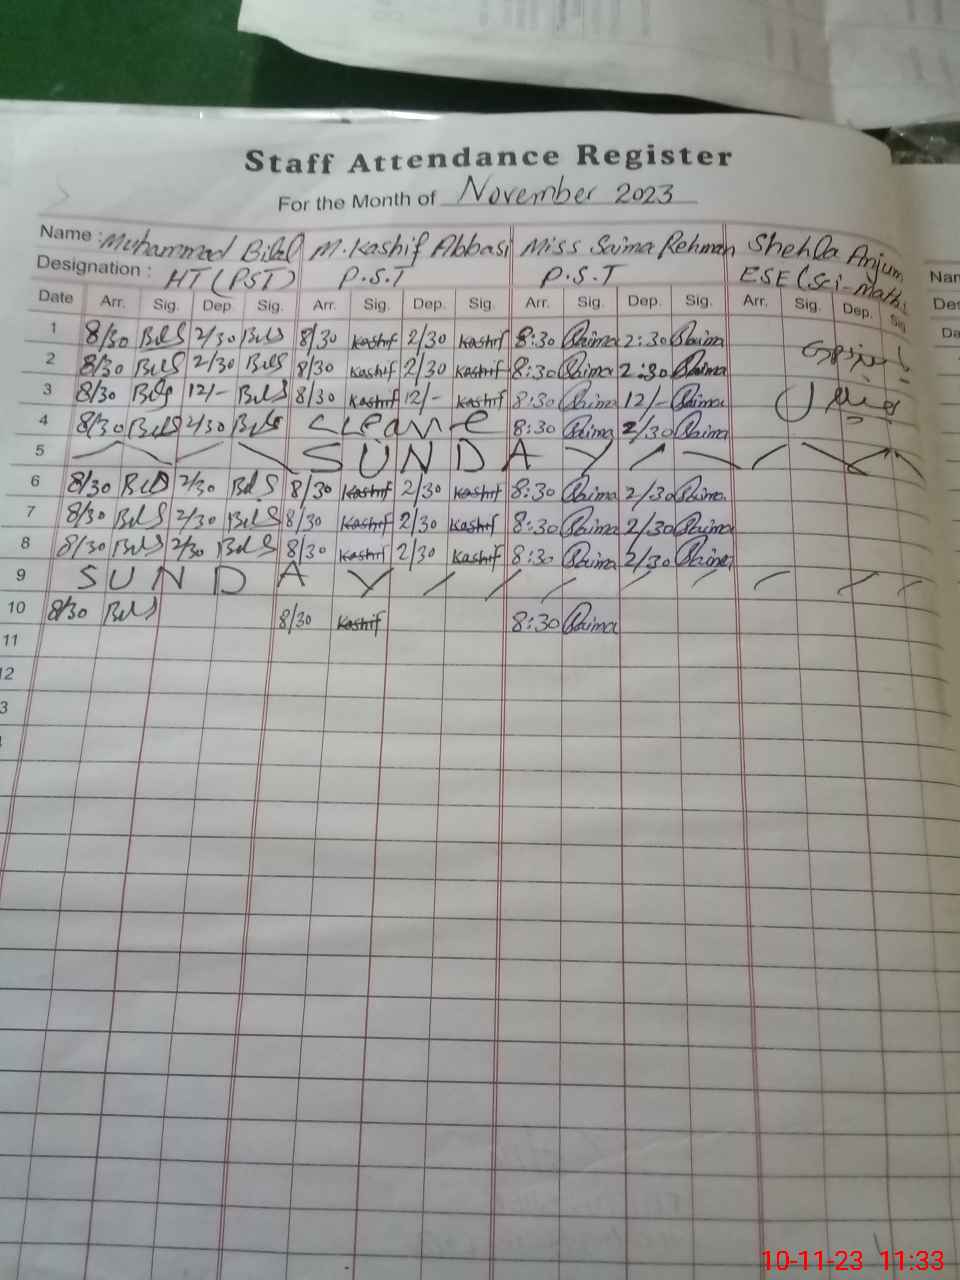 Staff Attendance Register
For the Month of November 2023
Name : Muhammad Bilal M. Kashif Abbasi Miss Saima Rehman Shehla Anjum
Designation : HT (PST) P.S.T P.S.T ESE (Sci-math)
Date Arr. Sig. Dep. Sig. Arr. Sig. Dep. Sig. Arr. Sig. Dep. Sig. Arr. Sig. Dep. Sig.
1 8/30 2/30 8/30 Kashif 2/30 Kashif 8:30 Saima 2:30 Saima
2 8/30 2/30 8/30 Kashif 2/30 Kashif 8:30 Saima 2:30 Saima
3 8/30 12/- 8/30 Kashif 12/- Kashif 8:30 Saima 12/- Saima
4 8/30 2/30 C Leave 8:30 Saima 2/30 Saima
5 SUNDAY
6 8/30 2/30 8/30 Kashif 2/30 Kashif 8:30 Saima 2/30 Saima
7 8/30 2/30 8/30 Kashif 2/30 Kashif 8:30 Saima 2/30 Saima
8 8/30 2/30 8/30 Kashif 2/30 Kashif 8:30 Saima 2/30 Saima
9 SUNDAY
10 8/30 8/30 Kashif 8:30 Saima
11
12
3
Nam
Des
Da
10-11-23 11:33